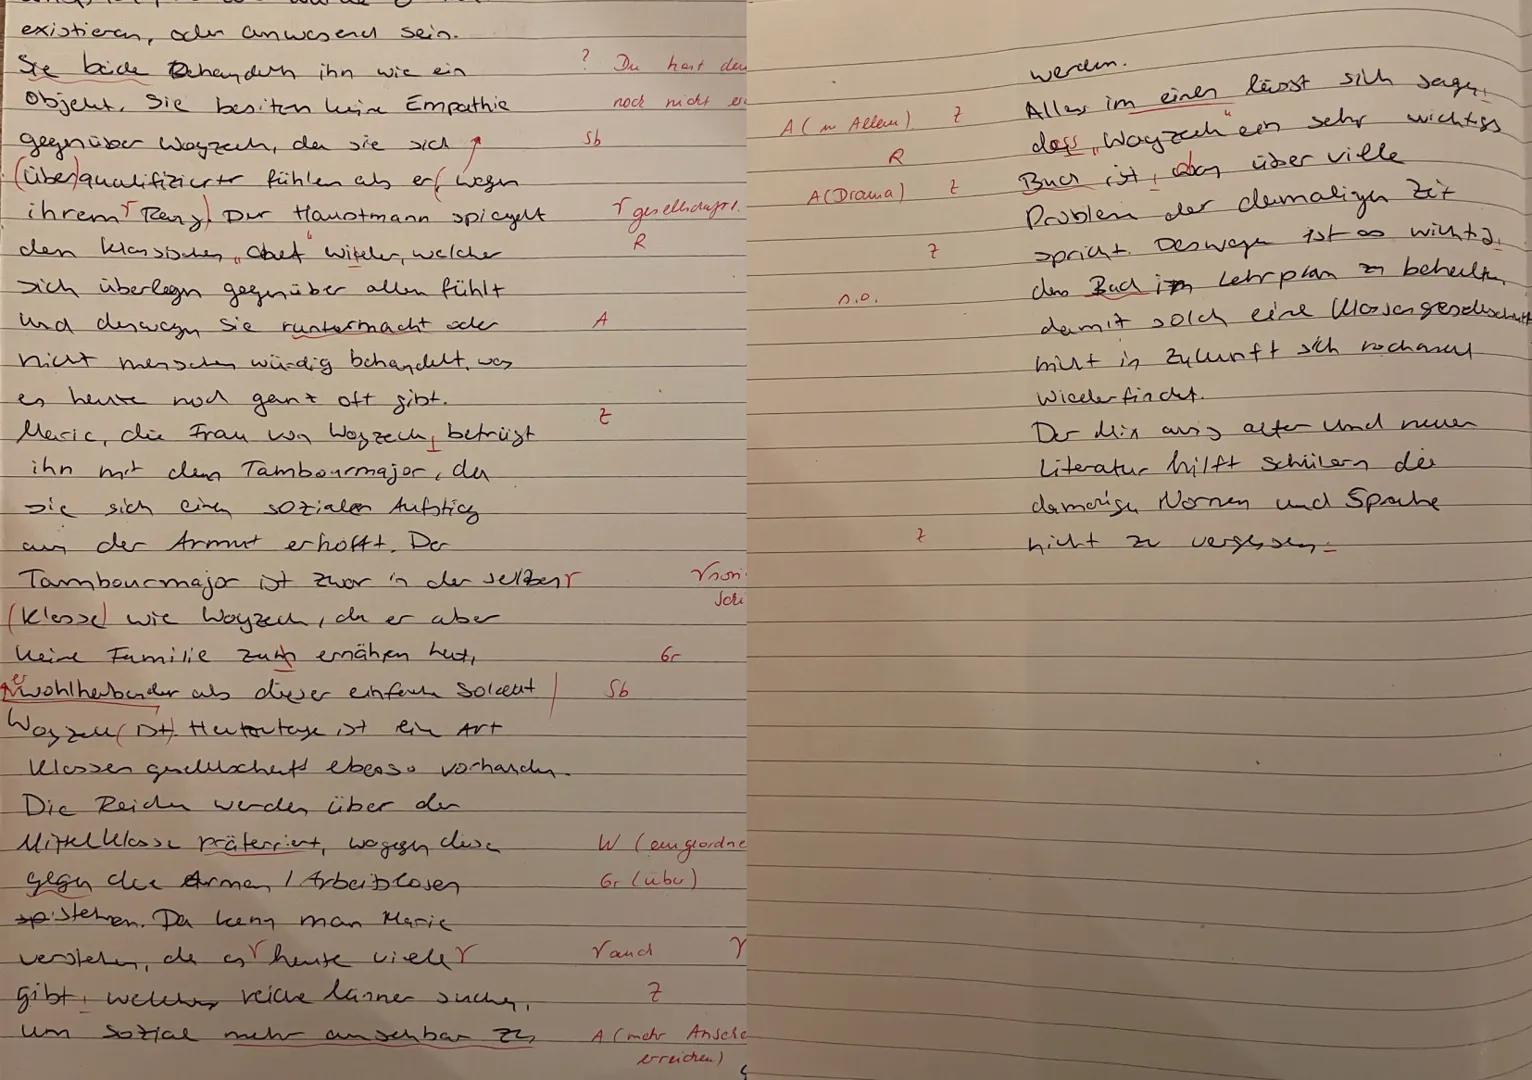 existieren, oder anwesend sein.
Sie beide Behandeln ihn wie ein
? Du hast den
Objekt. Sie besiten keine Empathie
noch nicht
gegenüber Woyzeck, da sie sich
Sb
(über)qualifizierter fühlen als er( wegen
ihrem Rang). Der Hauptmann spiegelt
gesellschaftl.
den klassischen „Chef" wieder, welcher
R
sich überlegen gegenüber allen fühlt
und deswegen sie runtermacht oder
A
nicht menschen würdig behandelt, was
es heute noch ganz oft gibt.
Z
Marie, die Frau von Woyzeck, betrügt
ihn mit dem Tambourmajor, da
sie sich einen sozialen Aufstieg
aus der Armut erhofft. Der
Tambourmajor ist zwar in der selben
(Klasse) wie Woyzeck, da er aber
keine Familie zum ernähren hat,
Gr
wohlhabender als dieser einfache Soldat
er
Sb
Woyzeck (ist). Heutzutage ist eine Art
Klassen gesellschaft ebenso vorhanden.
Die Reichen werden über der
Mittelklasse präferiert, wogegen diese
W (eingeordne
gegen die Armen / Arbeitslosen
Gr (über)
stehen. Da kann man Marie
verstehen, da es heute viele
und
gibt, welche reiche Männer suchen,
Z
um sozial mehr ansehbar zu
A (mehr Ansehe
erreichen)
werden.
Alles im einen lässt sich sagen,
A (in Allem) Z
dass „Woyzeck" ein sehr wichtiges
R
Buch ist, das über viele
A (Drama) Z
Problem der damaligen Zeit
spricht. Deswegen ist es wichtig,
Z
das Buch im Lehrplan zu behalten,
s.o.
damit solch eine Klassengesellschaft
nicht in Zukunft sich nochmal
wiederfindet.
Der Mix aus alter und neuer
Literatur hilft Schülern die
damalige Normen und Sprache
nicht zu vergessen.
Z